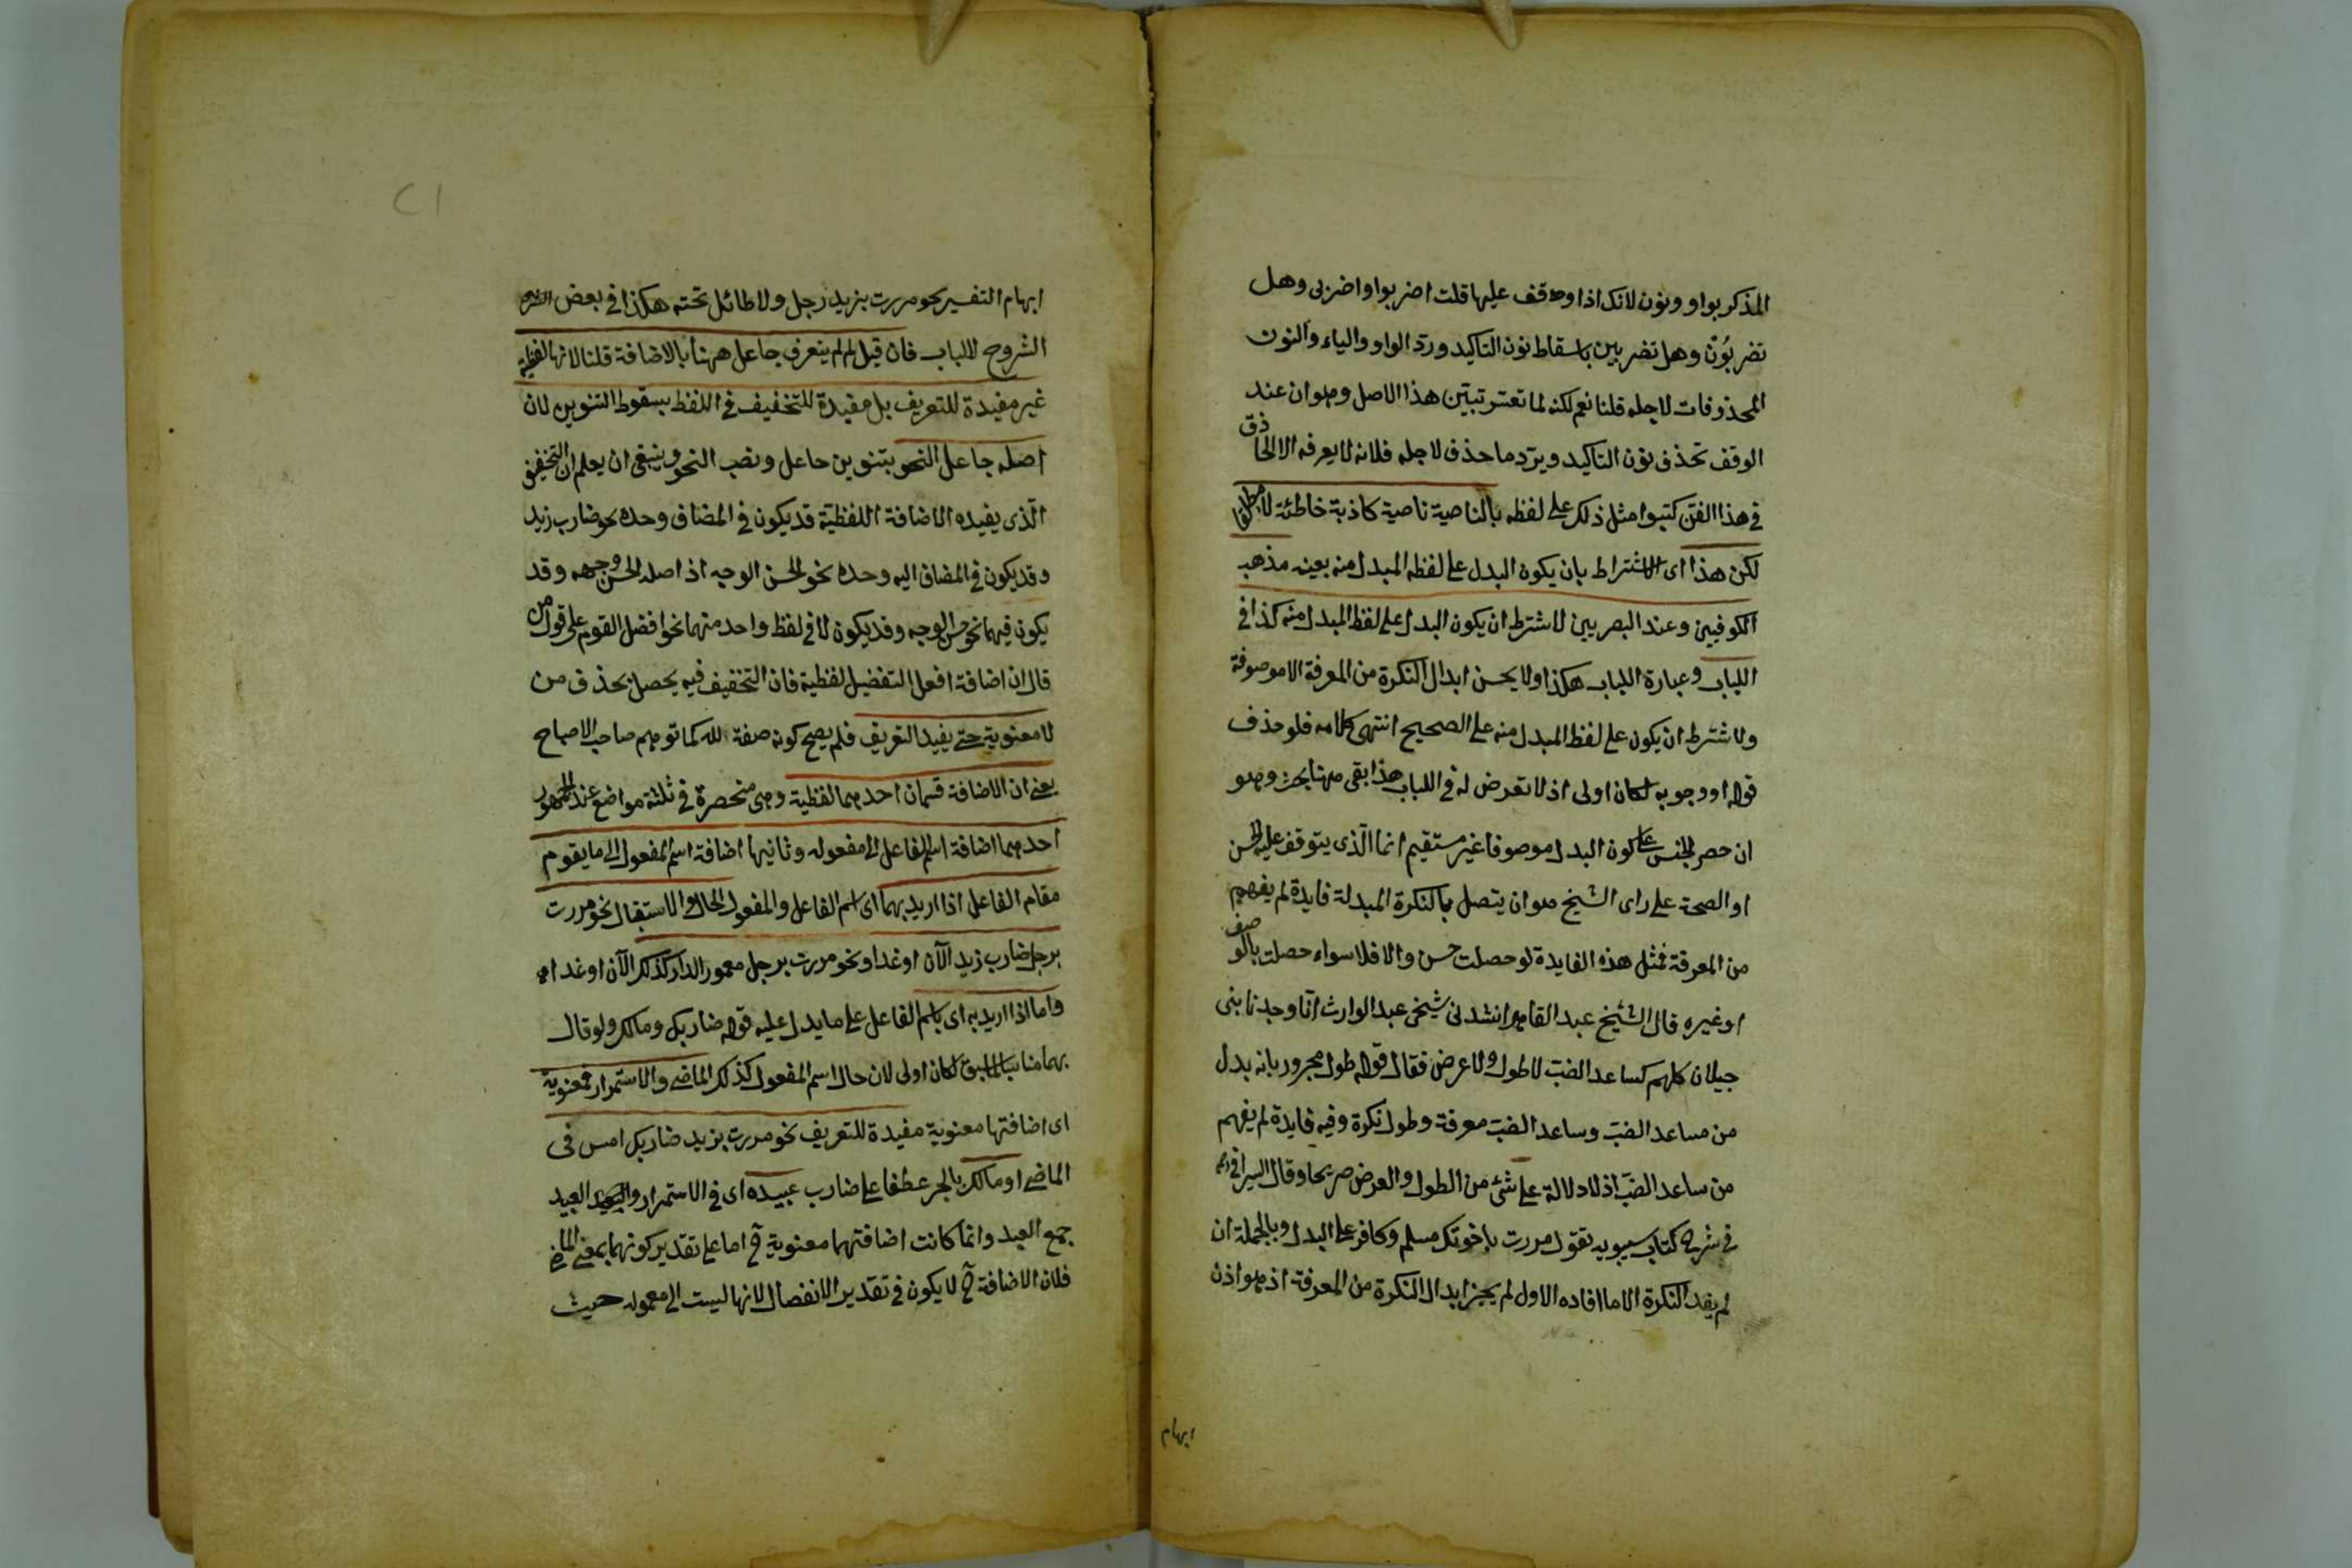 المذكر بواو ونون لانك اذا وقف عليها قلت اضربوا واضربى وهل
تضربُوُنّ وهل تضربين باسقاط نون التاكيد ورد الواو والياء والنون
المحذوفات لاجله قلنا نعم لكنه لما تعسر تبيّن هذا الاصل وهو ان عند
الوقف تحذف نون التاكيد ويرد ما حذف لاجله فلانه لا يعرفه الا الحاذق
فى هذا الفن كتبوا مثل ذلك على لفظه بالناصية ناصية كاذبة خاطئة لا مطلقا
لكن هذا اى الاشتراط بان يكون البدل على لفظه المبدل منه بعينه مذهب
الكوفيين وعند البصريين لا شترط ان يكون البدل على لفظ المبدل منه كذا فى
اللباب وعبارة اللباب هكذا ولا يحسن ابدال النكرة من المعرفة الا موصوفة
ولا شترط ان يكون على لفظ المبدل منه على الصحيح انتهى كلامه فلو حذف
قوله او وجوبه لكان اولى اذ لا تعرض له فى اللباب هذا بقى ههنا بحث وهو
ان حصر الجنس على كون البدل موصوفا غير مستقيم انما الّذى يتوقف عليه الحسن
او الصحة على راى الشيخ هو ان يتصل بالنكرة المبدلة فايدة لم يفهم
من المعرفة فمثل هذه الفايدة لو حصلت حسن والا فلا سواء حصلت بالوصف
او غيره قال الشيخ عبد القاهر انشدنى شيخى عبد الوارث انّا وجدنا بنى
جيلان كلهم كساعد الضبّ لا طول ولا عرض فقال قوله طول مجرور بانه بدل
من ساعد الضبّ وساعد الضبّ معرفة وطول نكرة وفيه فايدة لم يفهم
من ساعد الضبّ اذ لا دلالة على شئ من الطول والعرض صريحا وقال السيرافى
فى شرح كتاب سيبويه تقول مررت باخوتك مسلم وكافر على البدل وبالجملة ان
لم يفد النكرة الا ما افاده الاول لم يجز ابدال النكرة من المعرفة اذ هو اذن
ابهام
٢١
ابهام التفسير نحو مررت بزيد رجل ولا طائل تحته هكذا فى بعض
الشروح للباب فان قيل لم لم يتعرف جاعل ههنا بالاضافة قلنا لانها لفظية
غير مفيدة للتعريف بل مفيدة للتخفيف فى اللفظ بسقوط التنوين لان
اصله جاعل النحو بتنوين جاعل ونصب النحو وينبغى ان يعلم ان التخفيف
الّذى يفيده الاضافة اللفظيّة قد يكون فى المضاف وحده نحو ضارب زيد
وقد يكون فى المضاف اليه وحده نحو الحسن الوجه اذ اصله الحسن وجهه وقد
يكون فيهما نحو حسن الوجه وقد يكون لا فى لفظ واحد منهما نحو افضل القوم على قول من
قال ان اضافة افعل التفضيل لفظية فان التخفيف فيه يحصل بحذف من
لا معنوية حتى يفيد التعريف فلم يصح كونه صفة لله كما توهم صاحب الاصباح
يعنى ان الاضافة قسمان احدهما لفظية وهى منحصرة فى ثلثة مواضع عند الجمهور
احدهما اضافة اسم الفاعل الى مفعوله وثانيها اضافة اسم المفعول الى ما يقوم
مقام الفاعل اذا اريد بهما اى اسم الفاعل والمفعول الحال والاستقبال نحو مررت
برجل ضارب زيد الآن او غدا ونحو مررت برجل معمور الدار كذلك الآن او غدا
واما اذا اريد به اى باسم الفاعل على ما يدل عليه قوله ضاربك ومالك ولو قال
بهما مناسبا لما سبق لكان اولى لان حال اسم المفعول كذلك الماضى والاستمرار فمعنوية
اى اضافتها معنوية مفيدة للتعريف نحو مررت بزيد ضاربك امس فى
الماضى او مالك بالجر عطفا على ضارب عبيده اى فى الاستمرار والعبيد
جمع العبد وانما كانت اضافتهما معنوية ح اما على تقدير كونهما بمعنى الماضى
فلان الاضافة ح لا يكون فى تقدير الانفصال لانها ليست الى معموله حيث